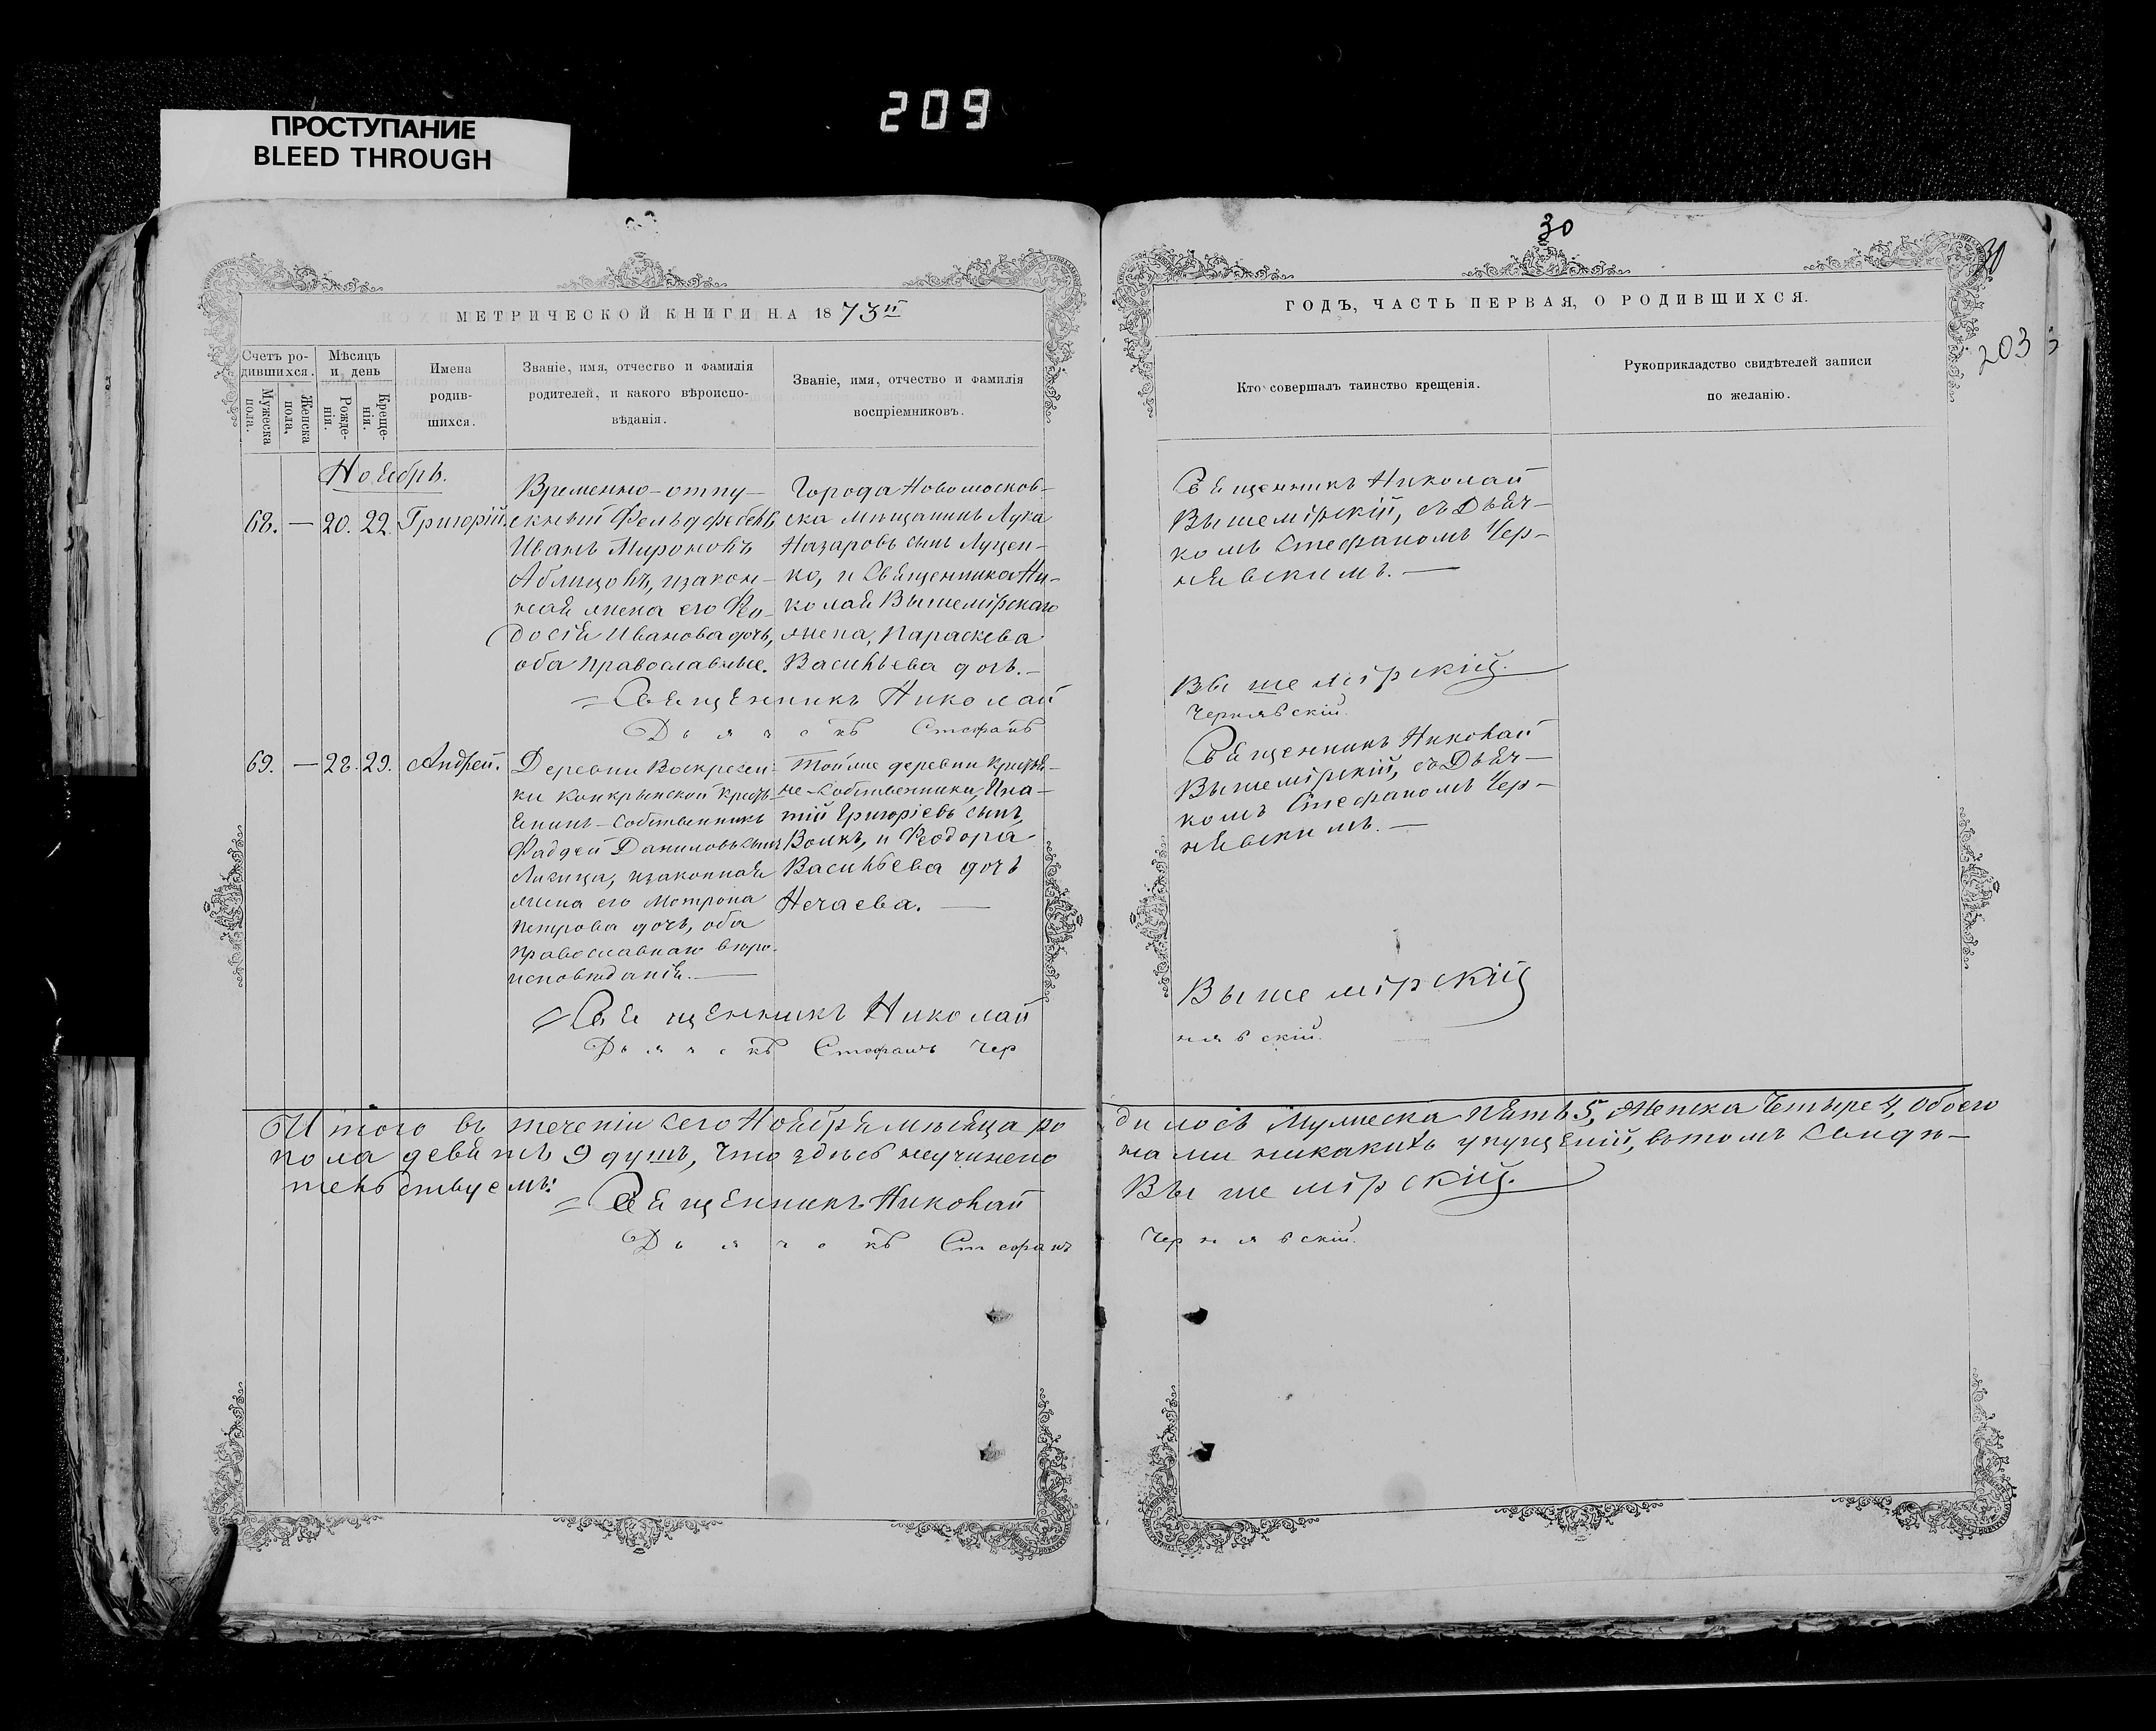 209
ПРОСТУПАНИЕ
BLEED THROUGH
МЕТРИЧЕСКОЙ КНИГИ НА 1873й
Счетъ ро-
дившихся.
Мужеска
пола.
Женска
пола.
Мѣсяцъ
и день
Рожде-
нія.
Креще-
нія.
Имена
родив-
шихся.
Званіе, имя, отчество и фамилія
родителей, и какого вѣроиспо-
вѣданія.
Званіе, имя, отчество и фамилія
воспріемниковъ.
Ноябрь.
68. — 20. 22. Григорій.
Временно-отпу-
скный Фельдфебель
Иванъ Мироновъ
изакон-
ная жена его Ѳео-
досія Иванова дочь,
оба православные.
Города Новомосков-
ска мѣщанинъ Лука
Назаровъ сынъ Луцен-
ко, и Священника Ни-
колая Вышемірскаго
жена, Параскева
Васильева дочь.—
Священникъ Николай
Дьячокъ Стефанъ
69. — 28. 29. Андрей.
Деревни Воскресен-
ки крестья-
янинъ-собственникъ
Фаддей Даниловъ сынъ
изаконная
жена его Мотрона
Петрова дочь, оба
православнаго вѣро-
исповѣданія.—
Тойже деревни крестья-
не-собственники, Игна-
тій Григоріевъ сынъ
Волкъ, и Ѳеодора
Васильева дочь
Нечаева. —
Священникъ Николай
Дьячокъ Стефанъ Чер
Итого въ теченіи сего Ноября мѣсяца ро
пола девять 9 душъ, что здѣсь неучинено
тельствуемъ:
Священникъ Николай
Дьячокъ Стефанъ
30
30
203
ГОДЪ, ЧАСТЬ ПЕРВАЯ, О РОДИВШИХСЯ.
Кто совершалъ таинство крещенія.
Рукоприкладство свидѣтелей записи
по желанію.
Священникъ Николай
Вышемірскій, съ Дьяч-
комъ Стефаномъ Чер-
нявскимъ. —
Вышемірскій.
Чернявскій.
Священникъ Николай
Вышемірскій, съ Дьяч-
комъ Стефаномъ Чер-
нявскимъ. —
Вышемірскій
нявскій.
дилось Мужеска пять 5, Женска Четыре 4, обоего
нами никакихъ упущеній, вътомъ свидѣ-
Вышемірскій.
Чернявскій.